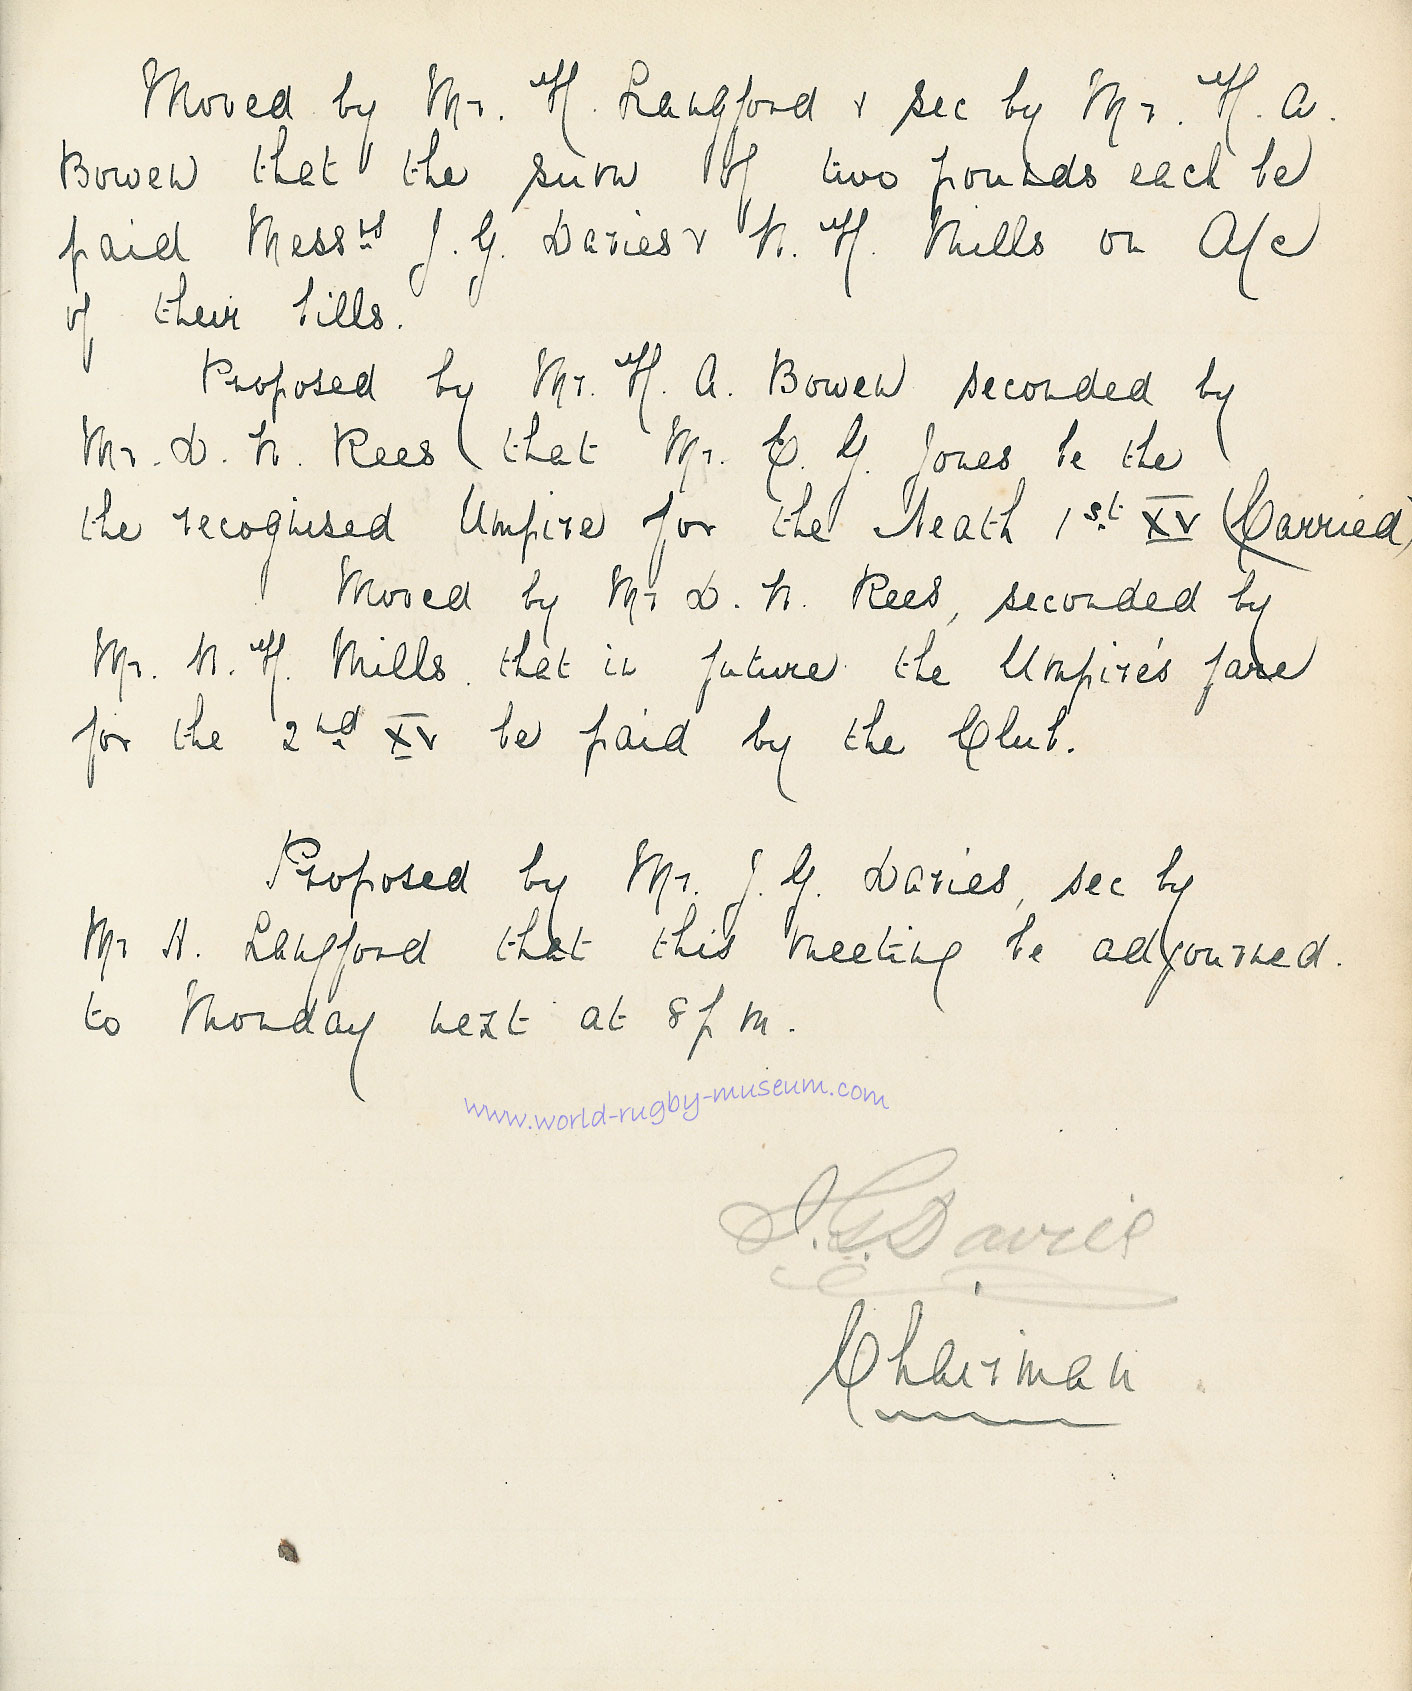 Moved by Mr. H. Langford & sec by Mr. H. A.
Bowen that the sum of two pounds each be
paid Messrs J. G. Davies & W. H. Mills on A/c
of their bills.
Proposed by Mr. H. A. Bowen seconded by
Mr. D. W. Rees that Mr. C. G. Jones be the
the recognised Umpire for the Neath 1st XV (Carried)
Moved by Mr D. W. Rees, seconded by
Mr. W. H. Mills that in future the Umpire's fare
for the 2nd XV be paid by the Club.
Proposed by Mr. J. G. Davies, sec by
Mr H. Langford that this meeting be adjourned.
to Monday next at 8 p m.
www.world-rugby-museum.com
J. G. Davies
Chairman